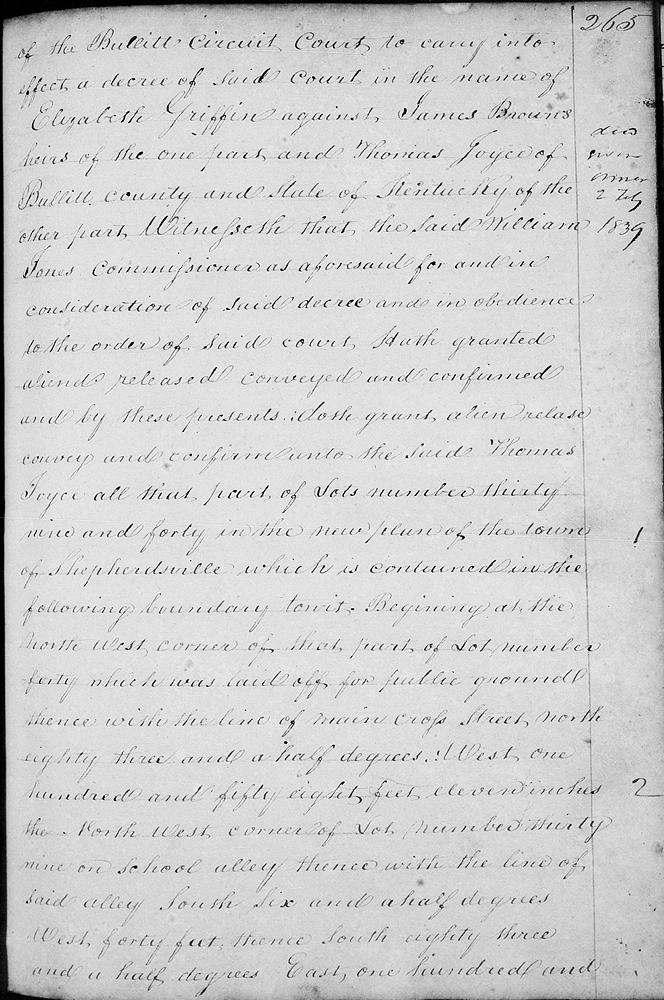 265
of the Bullitt Circuit Court to carry into
effect a decree of said Court in the name of
Elizabeth Griffin against James Browns
heirs of the one part and Thomas Joyce of
Bullitt county and State of Kentucky of the
other part Witnesseth that the said William
Jones Commissioner as aforesaid for and in
consideration of said decree and in obedience
to the order of said court Hath granted
aliend released conveyed and confirmed
and by these presents doth grant alien relase
convey and confirm unto the said Thomas
Joyce all that part of Lots number thirty
nine and forty in the new plan of the town
of Shepherdsville which is contained in the
following boundary towit. Begining at the
North West corner of that part of Lot number
forty which was laid off for public ground
thence with the line of main cross Street north
eighty three and a half degrees West one
hundred and fifty eight feet eleven inches
the North West corner of Lot number thirty
nine on School alley thence with the line of
said alley South Six and a half degrees
West forty feet, thence South eighty three
and a half degrees East, one hundred and
2 July
1839
2